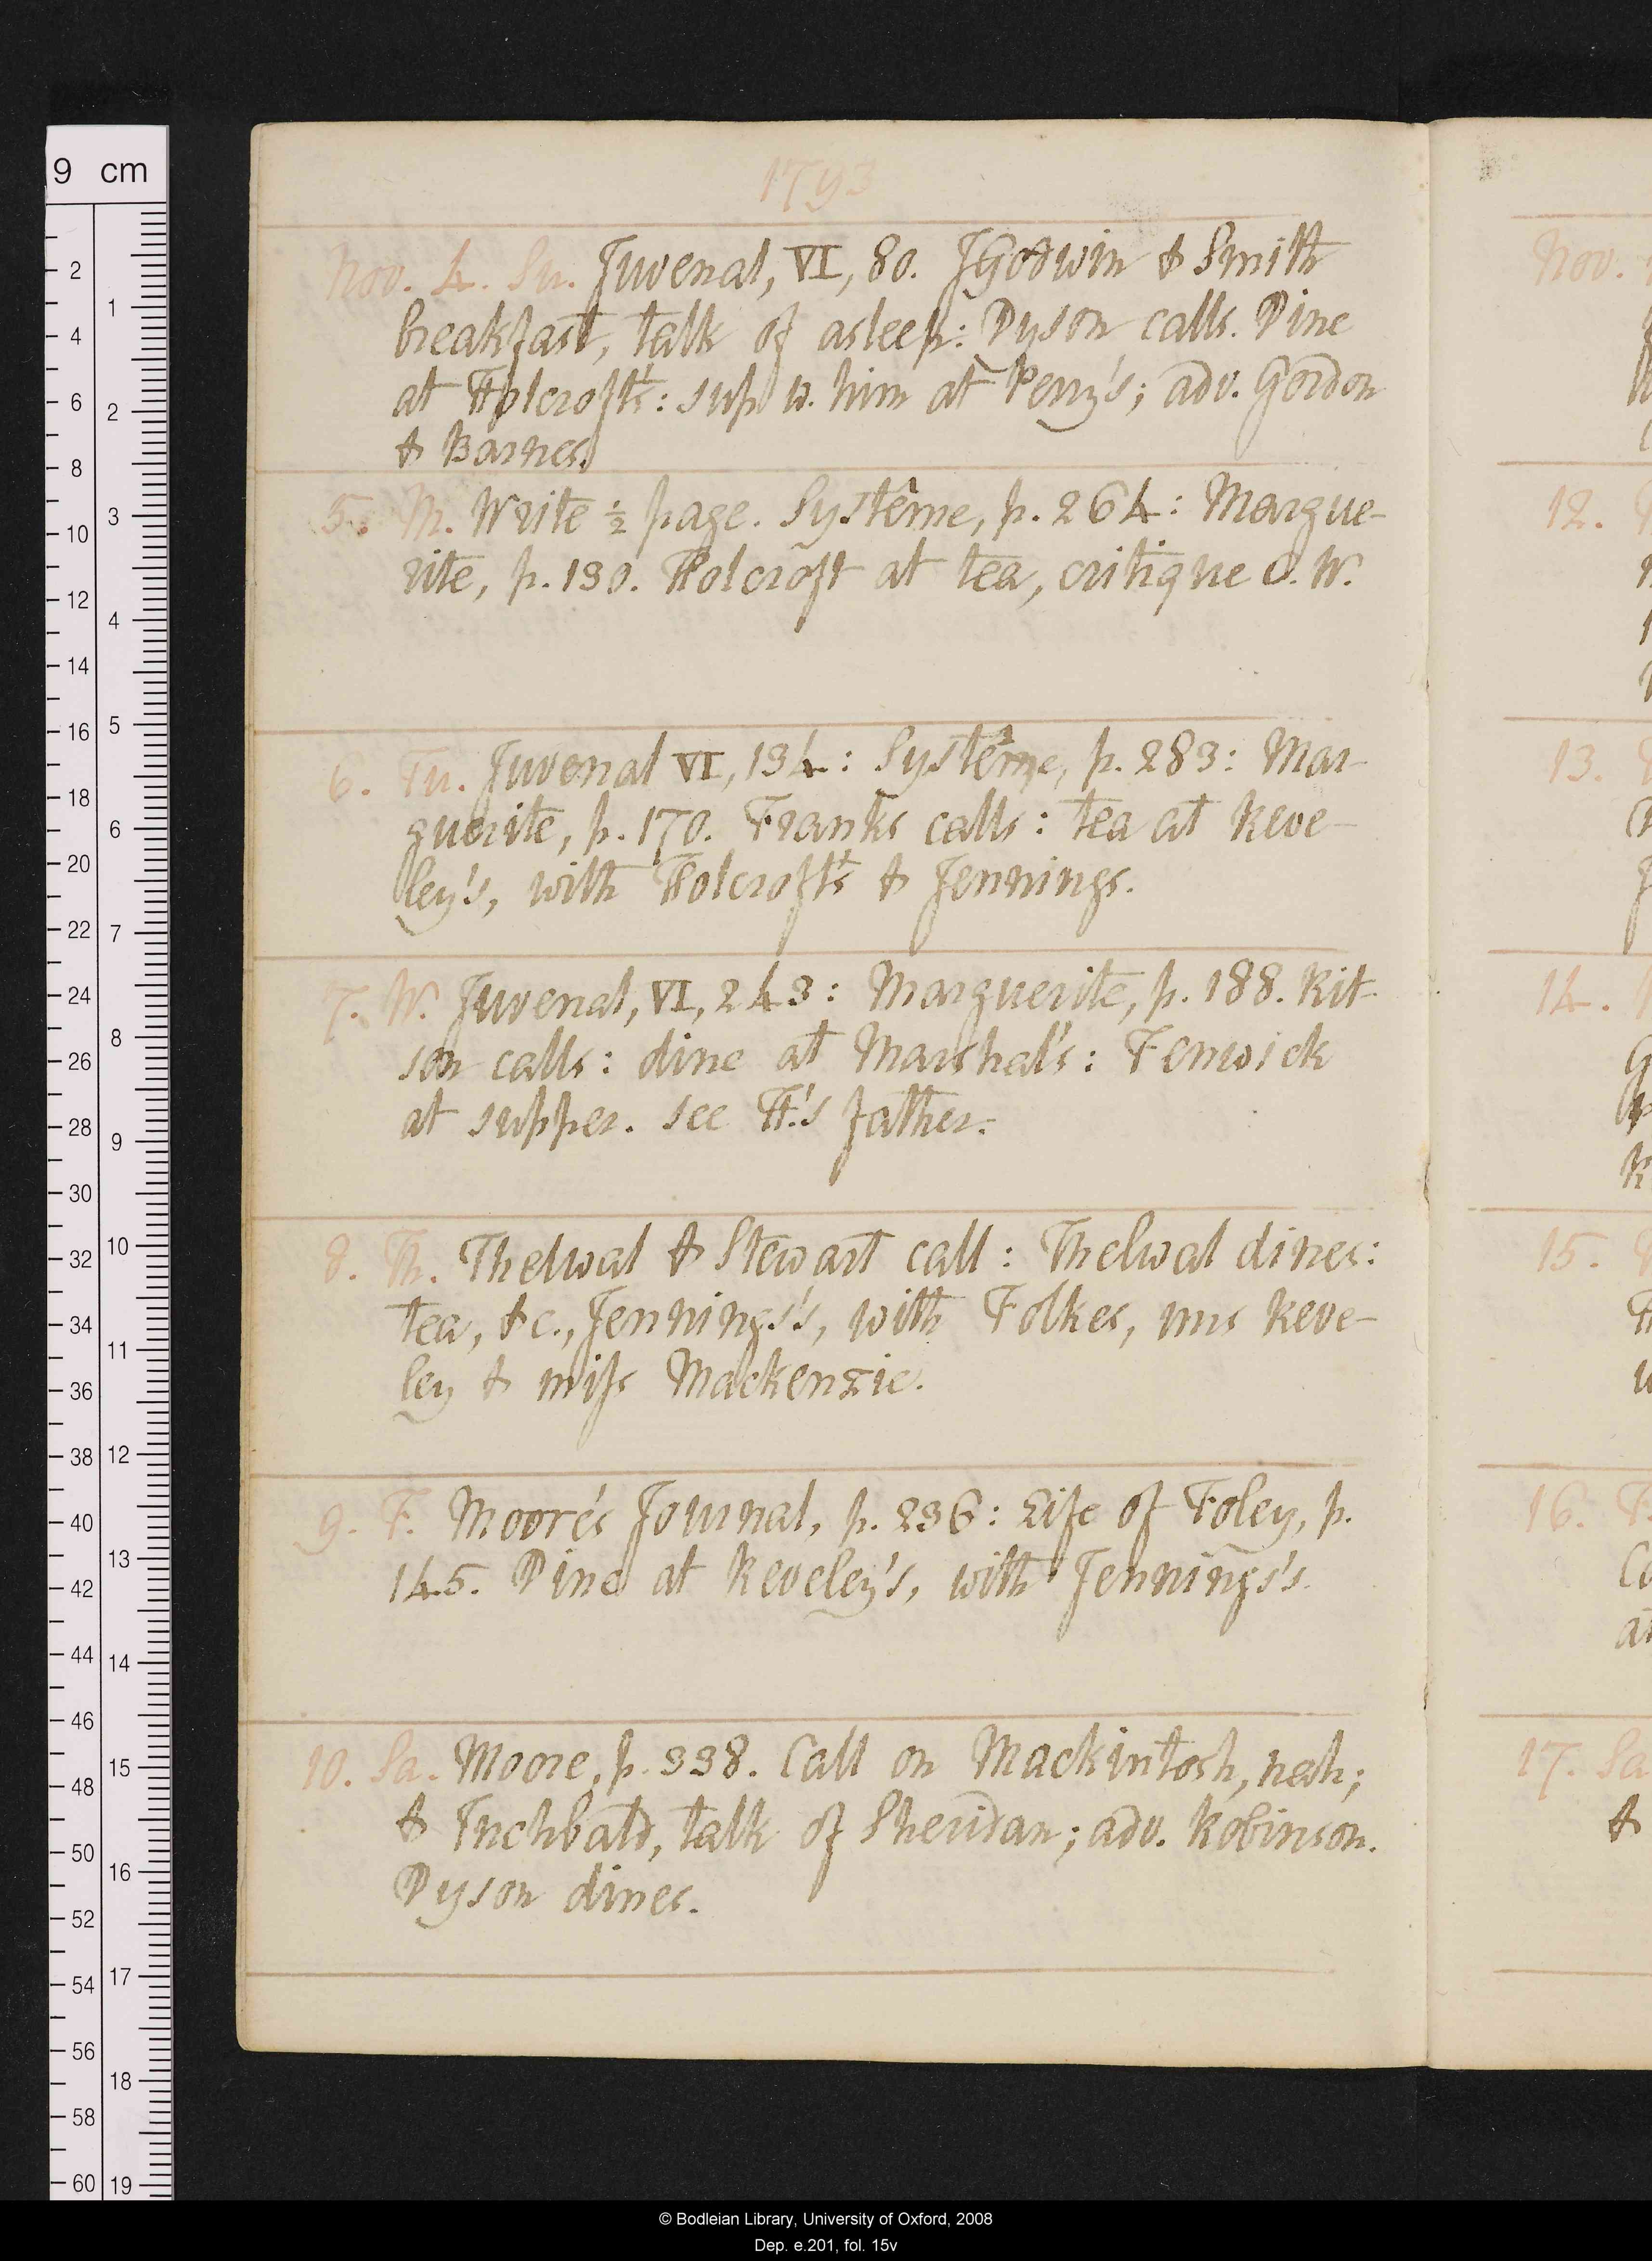 1793
Nov. 4. Su. Juvenal, VI, 80. JGodwin & Smith
breakfast, talk of asleep: Dyson calls. Dine
at Holcroft's: sup w. him at Perry's; adv. Gordon
& Barnes.
5. M. Write ½ page. Systême, p. 264: Margue-
rite, p. 130. Holcroft at tea, critique C. W.
6. Tu. Juvenal VI, 134: Systême, p. 283: Mar-
guerite, p. 170. Franks calls: tea at Reve-
ley's, with Holcroft's & Jennings.
7. W. Juvenal, VI, 243: Marguerite, p. 188. Rit-
son calls: dine at Marshal's: Fenwick
at supper. See H.'s father.
8. Th. Thelwal & Stewart call: Thelwal dines:
tea, &c., Jennings's, with Folkes, mrs Reve-
ley & miſs Mackenzie.
9. F. Moore's Journal, p. 236: Life of Foley, p.
145. Dine at Reveley's, with Jennings's.
10. Sa. Moore, p. 338. Call on Mackintosh, nah;
& Inchbald, talk of Sheridan; adv. Robinson.
Dyson dines.
Nov.
12.
13.
14.
15.
16. F.
17. Sa
&
9 cm
2
4
6
8
10
12
14
16
18
20
22
24
26
28
30
32
34
36
38
40
42
44
46
48
50
52
54
56
58
60
1
2
3
4
5
6
7
8
9
10
11
12
13
14
15
16
17
18
19
© Bodleian Library, University of Oxford, 2008
Dep. e.201, fol. 15v